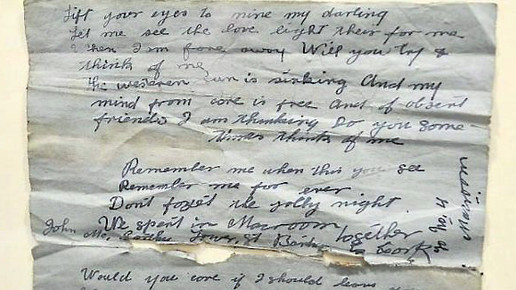 Lift your eyes to mine my darling
Let me see the love light their for me
When I am farr away Will you try &
think of me
The westeren sun is sinking And my
mind from care is free and of absent
friends I am thinking Do you some-
times think of me
Remember me when this you see
Remember me for ever
Dont forget the jolly night
We spent in Macroom together
John Mc Tower St Cork
Macroom
Would you care if I should leave you